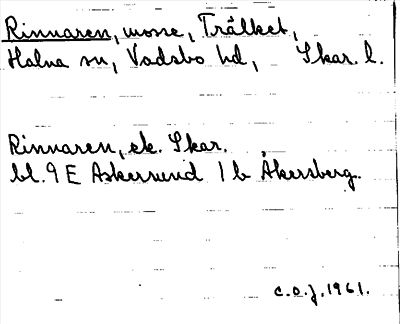 Rinnaren, mosse, Trålket,
Halna sn, Vadsbo hd, Skar. l.
Rinnaren, ek. Skar.
bl. 9 E Askersund 1 b Åkersberg.
c.o.j. 1961.